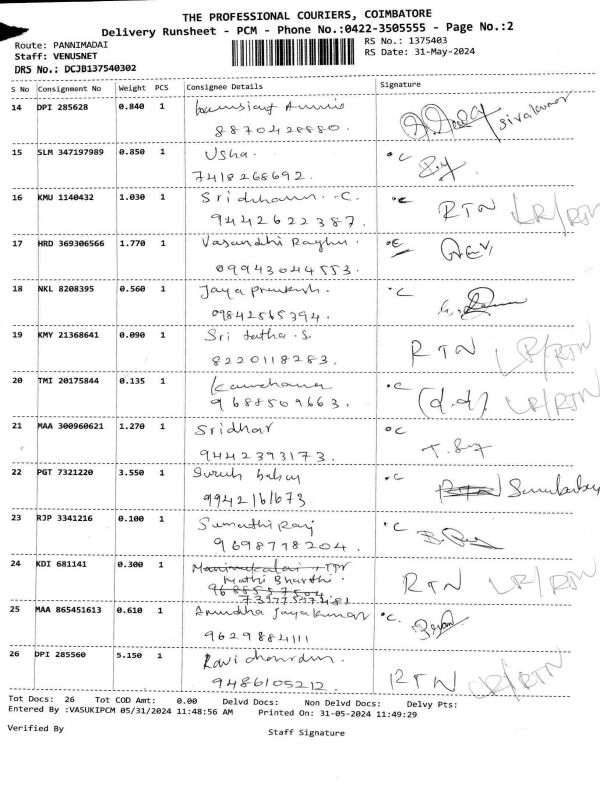 THE PROFESSIONAL COURIERS, COIMBATORE
Delivery Runsheet - PCM - Phone No.:0422-3505555 - Page No.:2
Route: PANNIMADAI RS No.: 1375403
Staff: VENUSNET RS Date: 31-May-2024
DRS No.: DCJB137540302
S No Consignment No Weight PCS Consignee Details Signature
14 DPI 285628 0.840 1
8870428880. Sivakumar
15 SLM 347197989 0.850 1 Usha. °C
7418268692.
16 KMU 1140432 1.030 1 °C
9442622387. RTN LR/RTN
17 HRD 369306566 1.770 1 Vasandhi Raghu.
09943044553.
18 NKL 8208395 0.560 1 Jaya Prakash. °C
09842565394.
19 KMY 21368641 0.090 1 Sri S.
8220118283. RTN LR/RTN
20 TMI 20175844 0.135 1 Kanchana °C
9688509663. (d.d) LR/RTN
21 MAA 300960621 1.270 1 Sridhar °C
9442393173.
22 PGT 7321220 3.550 1 Suresh babu °C
9942161673 RTN
23 RJP 3341216 0.100 1 Sumathi Raj °C
9698778204.
24 KDI 681141 0.300 1
Mathi Bharthi. RTN LR/RTN
25 MAA 865451613 0.610 1 Anudha Jayakumar °C.
9629884111
26 DPI 285560 5.150 1 Ravi
9486105212. RTN LR/RTN
Tot Docs: 26 Tot COD Amt: 0.00 Delvd Docs: Non Delvd Docs: Delvy Pts:
Entered By :VASUKIPCM 05/31/2024 11:48:56 AM Printed On: 31-05-2024 11:49:29
Verified By Staff Signature